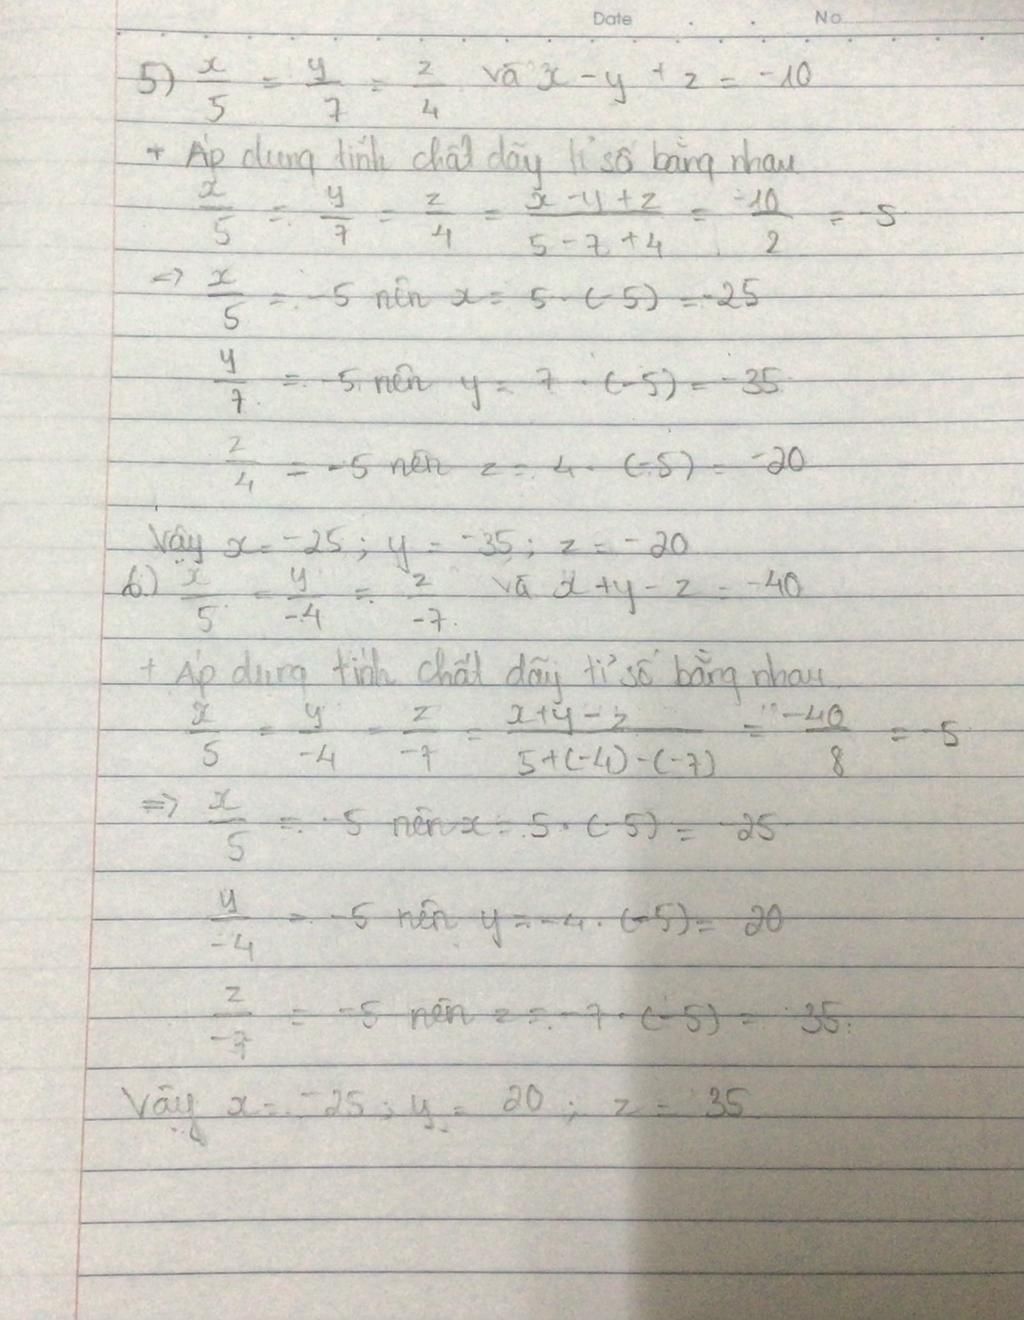 Date . . No
5) x/5 = y/7 = z/4 và x - y + z = -10
+ Áp dụng tính chất dãy tỉ số bằng nhau
x/5 = y/7 = z/4 = (x - y + z)/(5 - 7 + 4) = -10/2 = -5
=> x/5 = -5 nên x = 5 . (-5) = -25
y/7 = -5 nên y = 7 . (-5) = -35
z/4 = -5 nên z = 4 . (-5) = -20
Vậy x = -25 ; y = -35 ; z = -20
6) x/5 = y/-4 = z/-7 và x + y - z = -40
+ Áp dụng tính chất dãy tỉ số bằng nhau
x/5 = y/-4 = z/-7 = (x + y - z)/(5 + (-4) - (-7)) = -40/8 = -5
=> x/5 = -5 nên x = 5 . (-5) = -25
y/-4 = -5 nên y = -4 . (-5) = 20
z/-7 = -5 nên z = -7 . (-5) = 35
Vậy x = -25 ; y = 20 ; z = 35